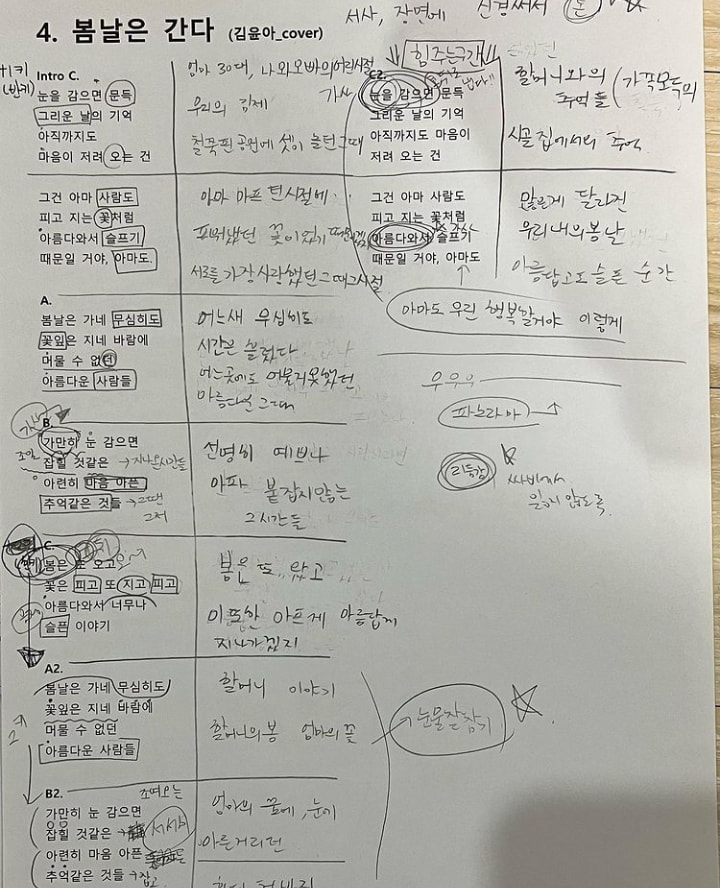 4. 봄날은 간다 (김윤아_cover)
서사, 장면에 신경써서
+1키
(반키)
Intro C.
눈을 감으면 문득
그리운 날의 기억
아직까지도
마음이 저려 오는 건
엄마 30대, 나와오빠의어린시절
우리의 김제
철쭉핀 공원에 셋이 놀던그때
힘주는구간
C2.
눈을 감으면 문득
그리운 날의 기억
아직까지도 마음이
저려 오는 건
할머니와의
추억들 (가족모두의
시골집에서의 추억
그건 아마 사람도
피고 지는 꽃처럼
아름다워서 슬프기
때문일 거야, 아마도.
아마 아프 던시절에..
피어났던 꽃이었기
서로를 가장사랑했던 그때그시절
그건 아마 사람도
피고 지는 꽃처럼
아름다워서 슬프기
때문일 거야, 아마도
많은게 달라진
우리네의봄날
아름답고도 슬픈 순간
아마도 우린 행복할거야 이렇게
A.
봄날은 가네 무심히도
꽃잎은 지네 바람에
머물 수 없던
아름다운 사람들
어느새 무심히도
시간은 흘렀다
어느곳에도 머물지못했던
아름다운 그때
우우우
파노라마
리듬감
B.
가만히 눈 감으면
잡힐 것같은
아련히 마음 아픈
추억같은 것들
선명히 예쁘나
아파 붙잡지않는
그시간들
C.
봄은 또 오고
꽃은 피고 또 지고 피고
아름다워서 너무나
슬픈 이야기
봄은 또 왔고
이또한 아프게 아름답게
지나가겠지
A2.
봄날은 가네 무심히도
꽃잎은 지네 바람에
머물 수 없던
아름다운 사람들
할머니 이야기
할머니의봄 엄마의 꽃
눈물잘참기
B2.
가만히 눈 감으면
잡힐 것같은
서서히
아련히 마음 아픈
추억같은 것들
엄마의 꿈에, 눈에
아른거리던